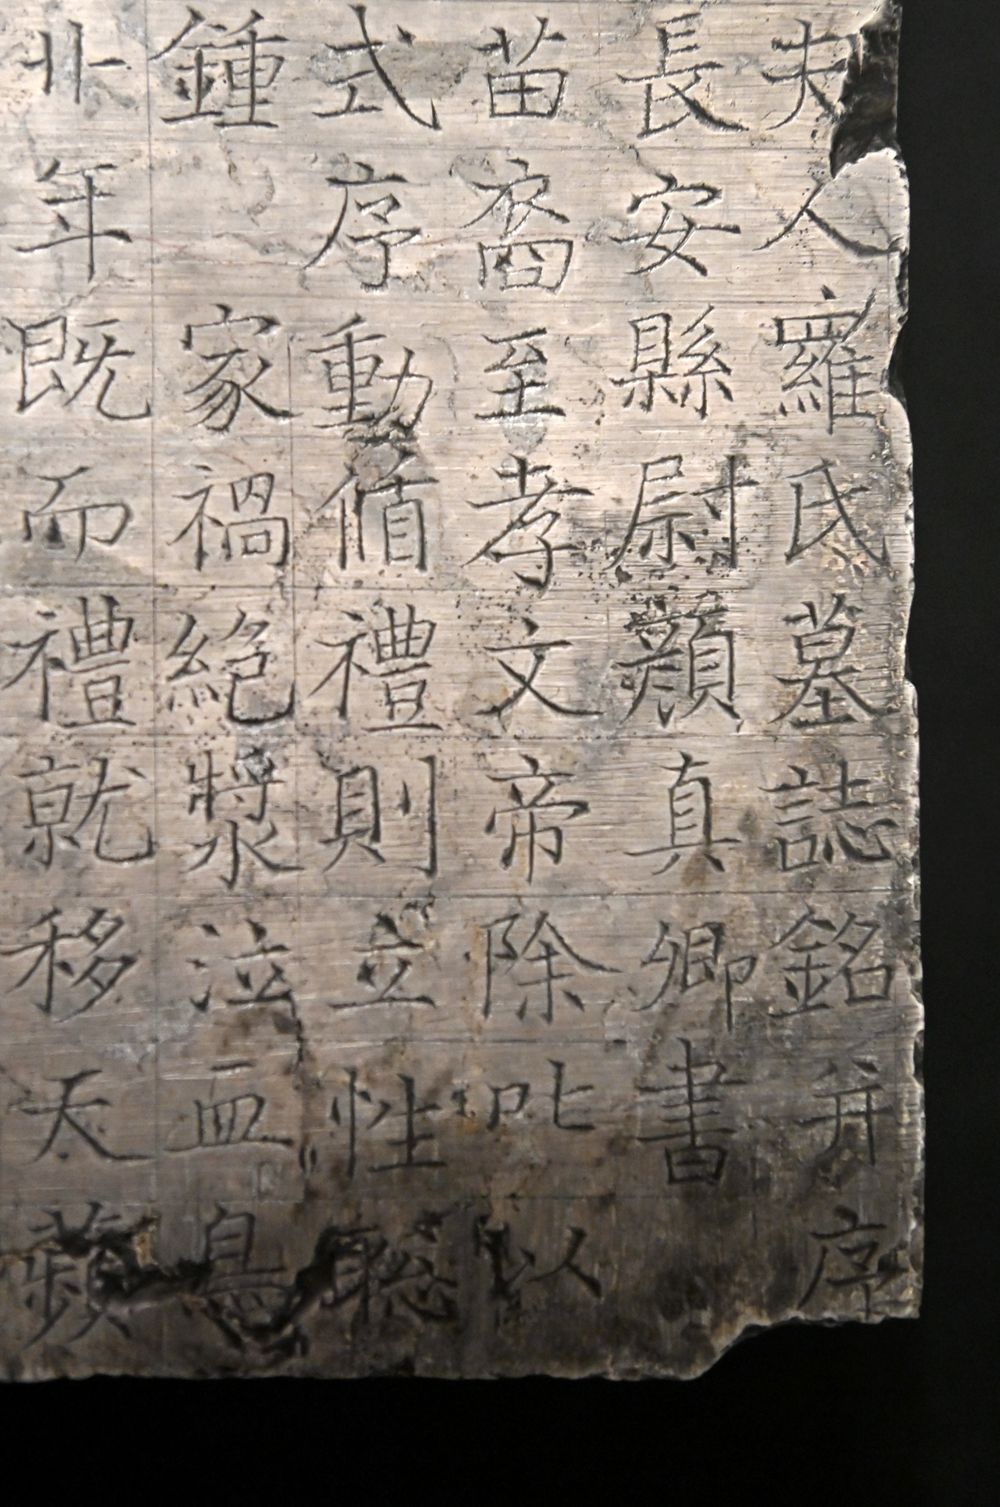 夫人羅氏墓誌銘并序
長安縣尉顏真卿書
苗裔至孝文帝除叱以
式序動循禮則立性聡
鍾 家禍絶漿泣血鳥
廿年既而禮就移天蘋